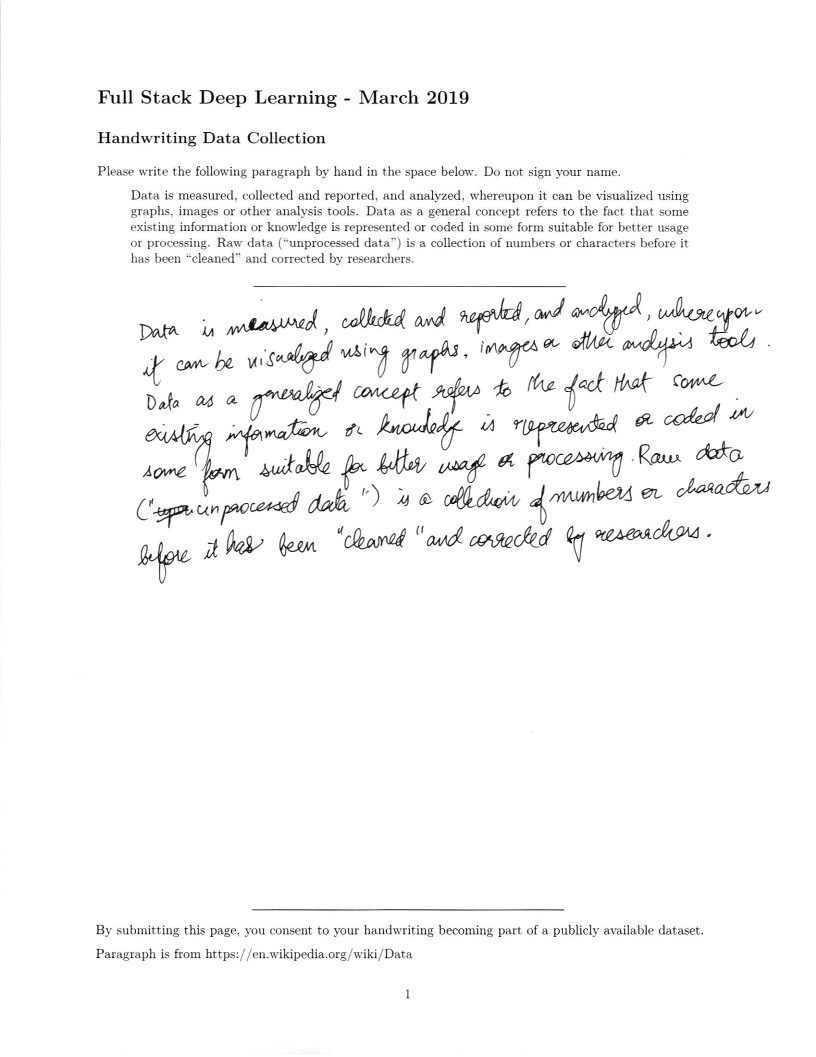 Full Stack Deep Learning - March 2019
Handwriting Data Collection
Please write the following paragraph by hand in the space below. Do not sign your name.
Data is measured, collected and reported, and analyzed, whereupon it can be visualized using
graphs, images or other analysis tools. Data as a general concept refers to the fact that some
existing information or knowledge is represented or coded in some form suitable for better usage
or processing. Raw data (“unprocessed data”) is a collection of numbers or characters before it
has been “cleaned” and corrected by researchers.
Data is measured, collected and reported, and analyzed, whereupon
it can be visualized using graphs, images or other analysis tools.
Data as a generalized concept refers to the fact that some
existing information or knowledge is represented or coded in
some form suitable for better usage or processing. Raw data
("unprocessed data") is a collection of numbers or characters
before it has been "cleaned" and corrected by researchers.
By submitting this page, you consent to your handwriting becoming part of a publicly available dataset.
Paragraph is from https://en.wikipedia.org/wiki/Data
1